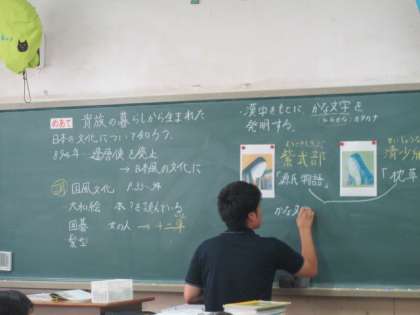 めあて 貴族の暮らしから生まれた
日本の文化について知ろう。
894年 遣唐使を廃止
→日本風の文化に
国風文化
大和絵
囲碁 女の人→十二単
髪型
・漢字をもとに かな文字を
発明する。
紫式部
「源氏物語」
清少
「枕草
かな文